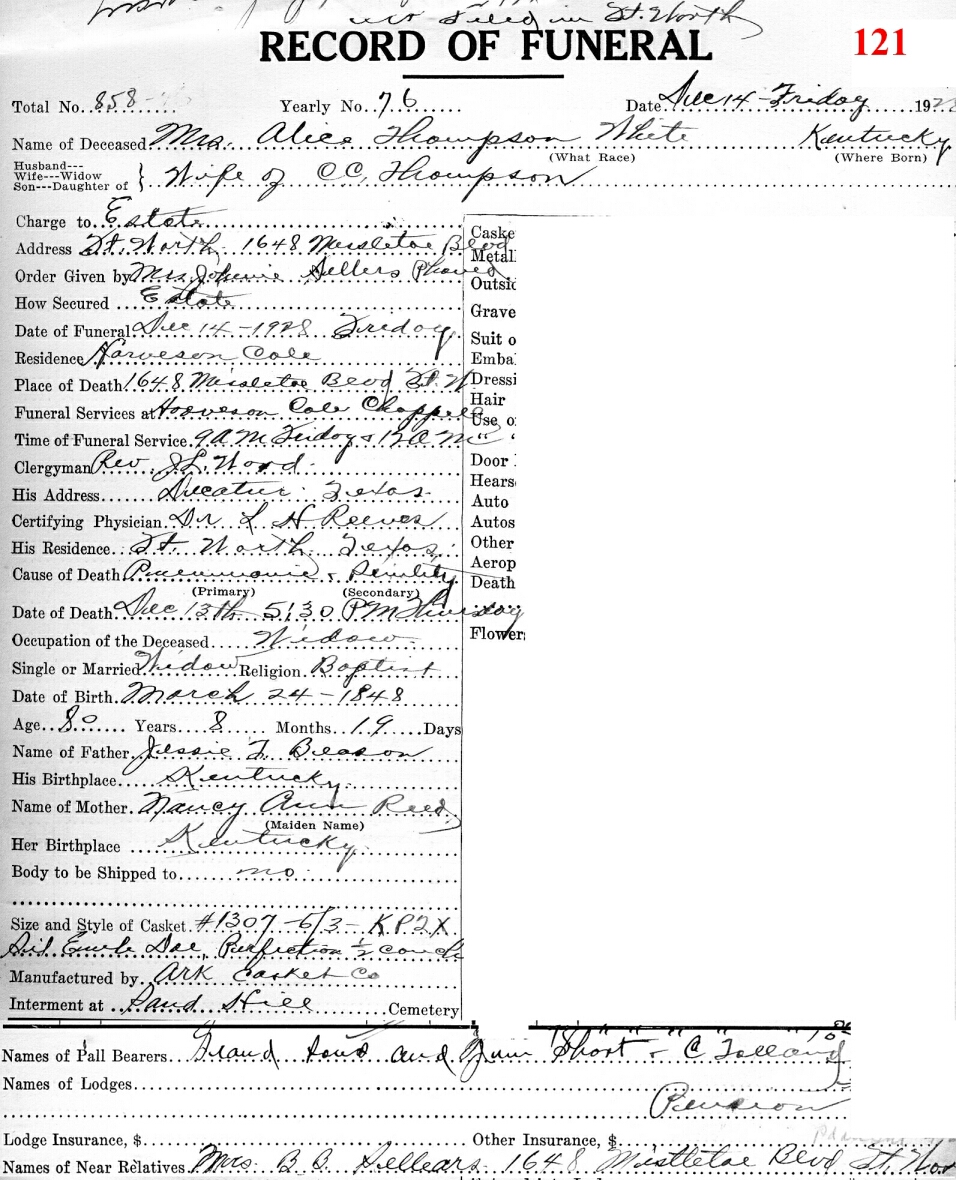 Filed in Ft. Worth
RECORD OF FUNERAL 121
Total No. 858 Yearly No. 76 Date Dec 14 - Friday 192
Name of Deceased Mrs. Alice Thompson White Kentucky
(What Race) (Where Born)
Husband---
Wife---Widow
Son---Daughter of } Wife of C C, Thompson
Charge to Estate
Address Ft. Worth 1648 Missletoe Blvd
Order Given by Mrs Johnie Sellers Phoned
How Secured Estate
Date of Funeral Dec 14 - 1928 Friday
Residence Harveson Cole
Place of Death 1648 Missletoe Blvd Ft. W
Funeral Services at Harveson Cole Chappel
Time of Funeral Service 9 A M Friday &
Clergyman Rev. J. L. Wood
His Address Decatur Texas
Certifying Physician Dr L H Reeves
His Residence Ft. Worth Texas
Cause of Death Pneumonia &
(Primary) (Secondary)
Date of Death Dec 13th 5:30 P M Thursday
Occupation of the Deceased Widow
Single or Married Widow Religion Baptist
Date of Birth March 24 - 1848
Age 80 Years 8 Months 19 Days
Name of Father Jessie F. Beason
His Birthplace Kentucky
Name of Mother Nancy Ann Reed
(Maiden Name)
Her Birthplace Kentucky
Body to be Shipped to no
Size and Style of Casket #1307 - 6/3 - K P 2 X
Perfection ½ couch
Manufactured by Ark Casket Co
Interment at Sand Hill Cemetery
Caske
Metall
Outsid
Grave
Suit o
Emba
Dressi
Hair
Use o
Door
Hears
Auto
Autos
Other
Aerop
Death
Flower
Names of Pall Bearers Grand Sons and Short & C
Names of Lodges
Lodge Insurance, $ Other Insurance, $
Names of Near Relatives Mrs. B. B. Sellears 1648 Mistletoe Blvd Ft. Wor